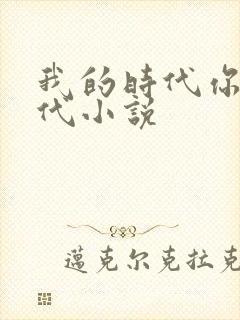 我的時代你
代小説
邁克尔克拉克